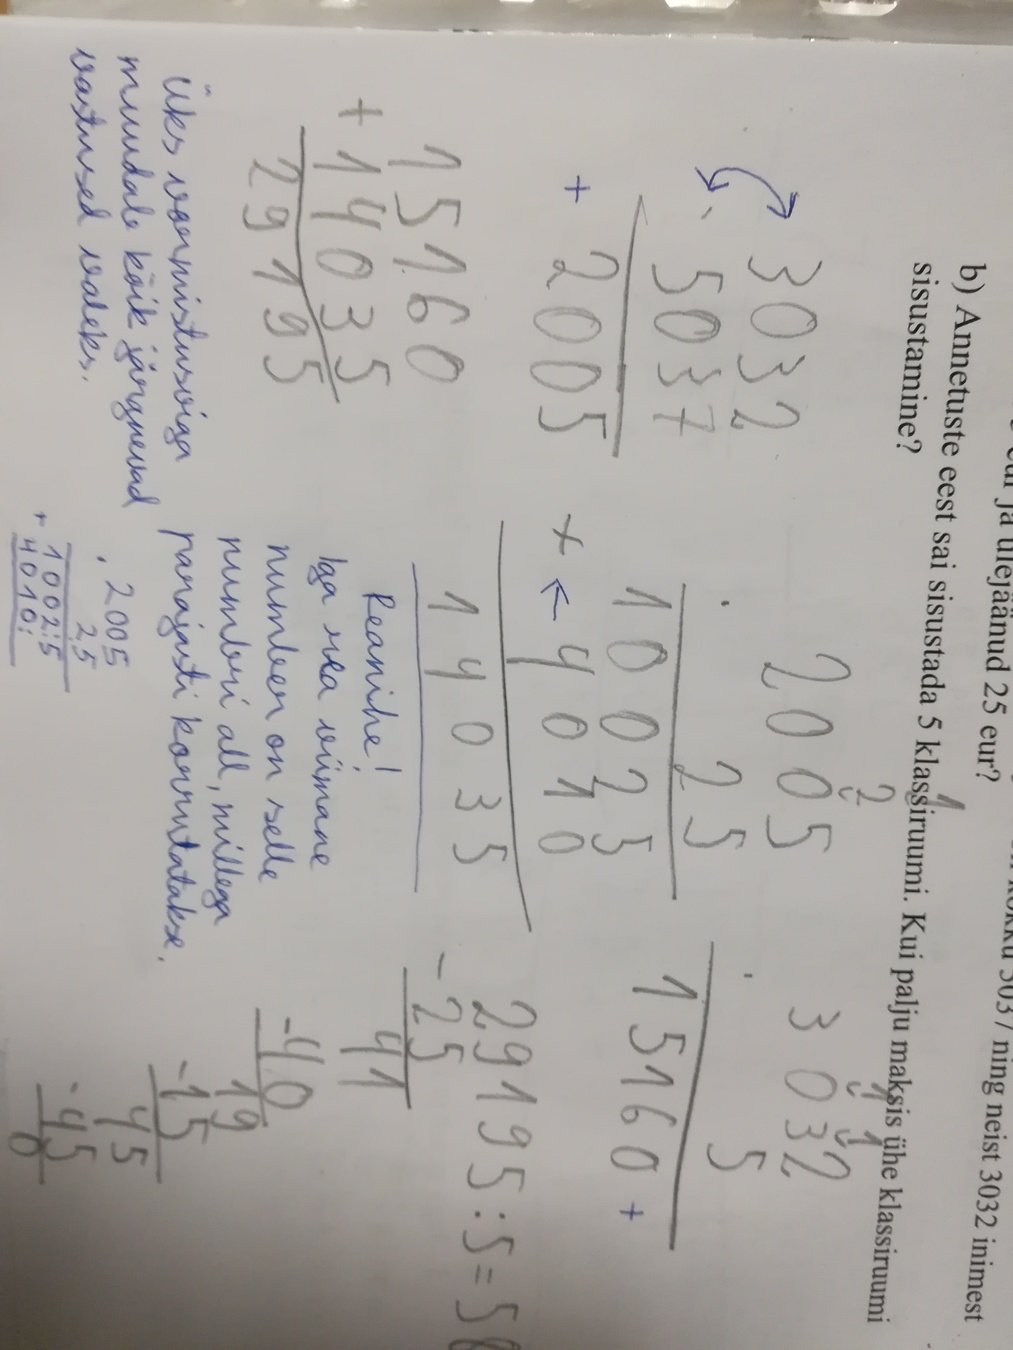 ja ülejäänud 25 eur?
kokku 5037 ning neist 3032 inimest
b) Annetuste eest sai sisustada 5 klassiruumi. Kui palju maksis ühe klassiruumi
sisustamine?
3032
- 5037
+ 2005
15160
+ 14035
29195
Üks vormistusviga
muudab kõik järgnevad
vastused valeks.
1
2
2005
. 25
10025
+ ← 4010
14035
Reanihe!
Iga rea viimane
number on selle
numbri all, millega
parajasti korrutatakse.
2005
. 25
10025
+ 4010
1 1
3032
. 5
15160 +
29195:5=58
- 25
41
-40
19
-15
45
-45
0